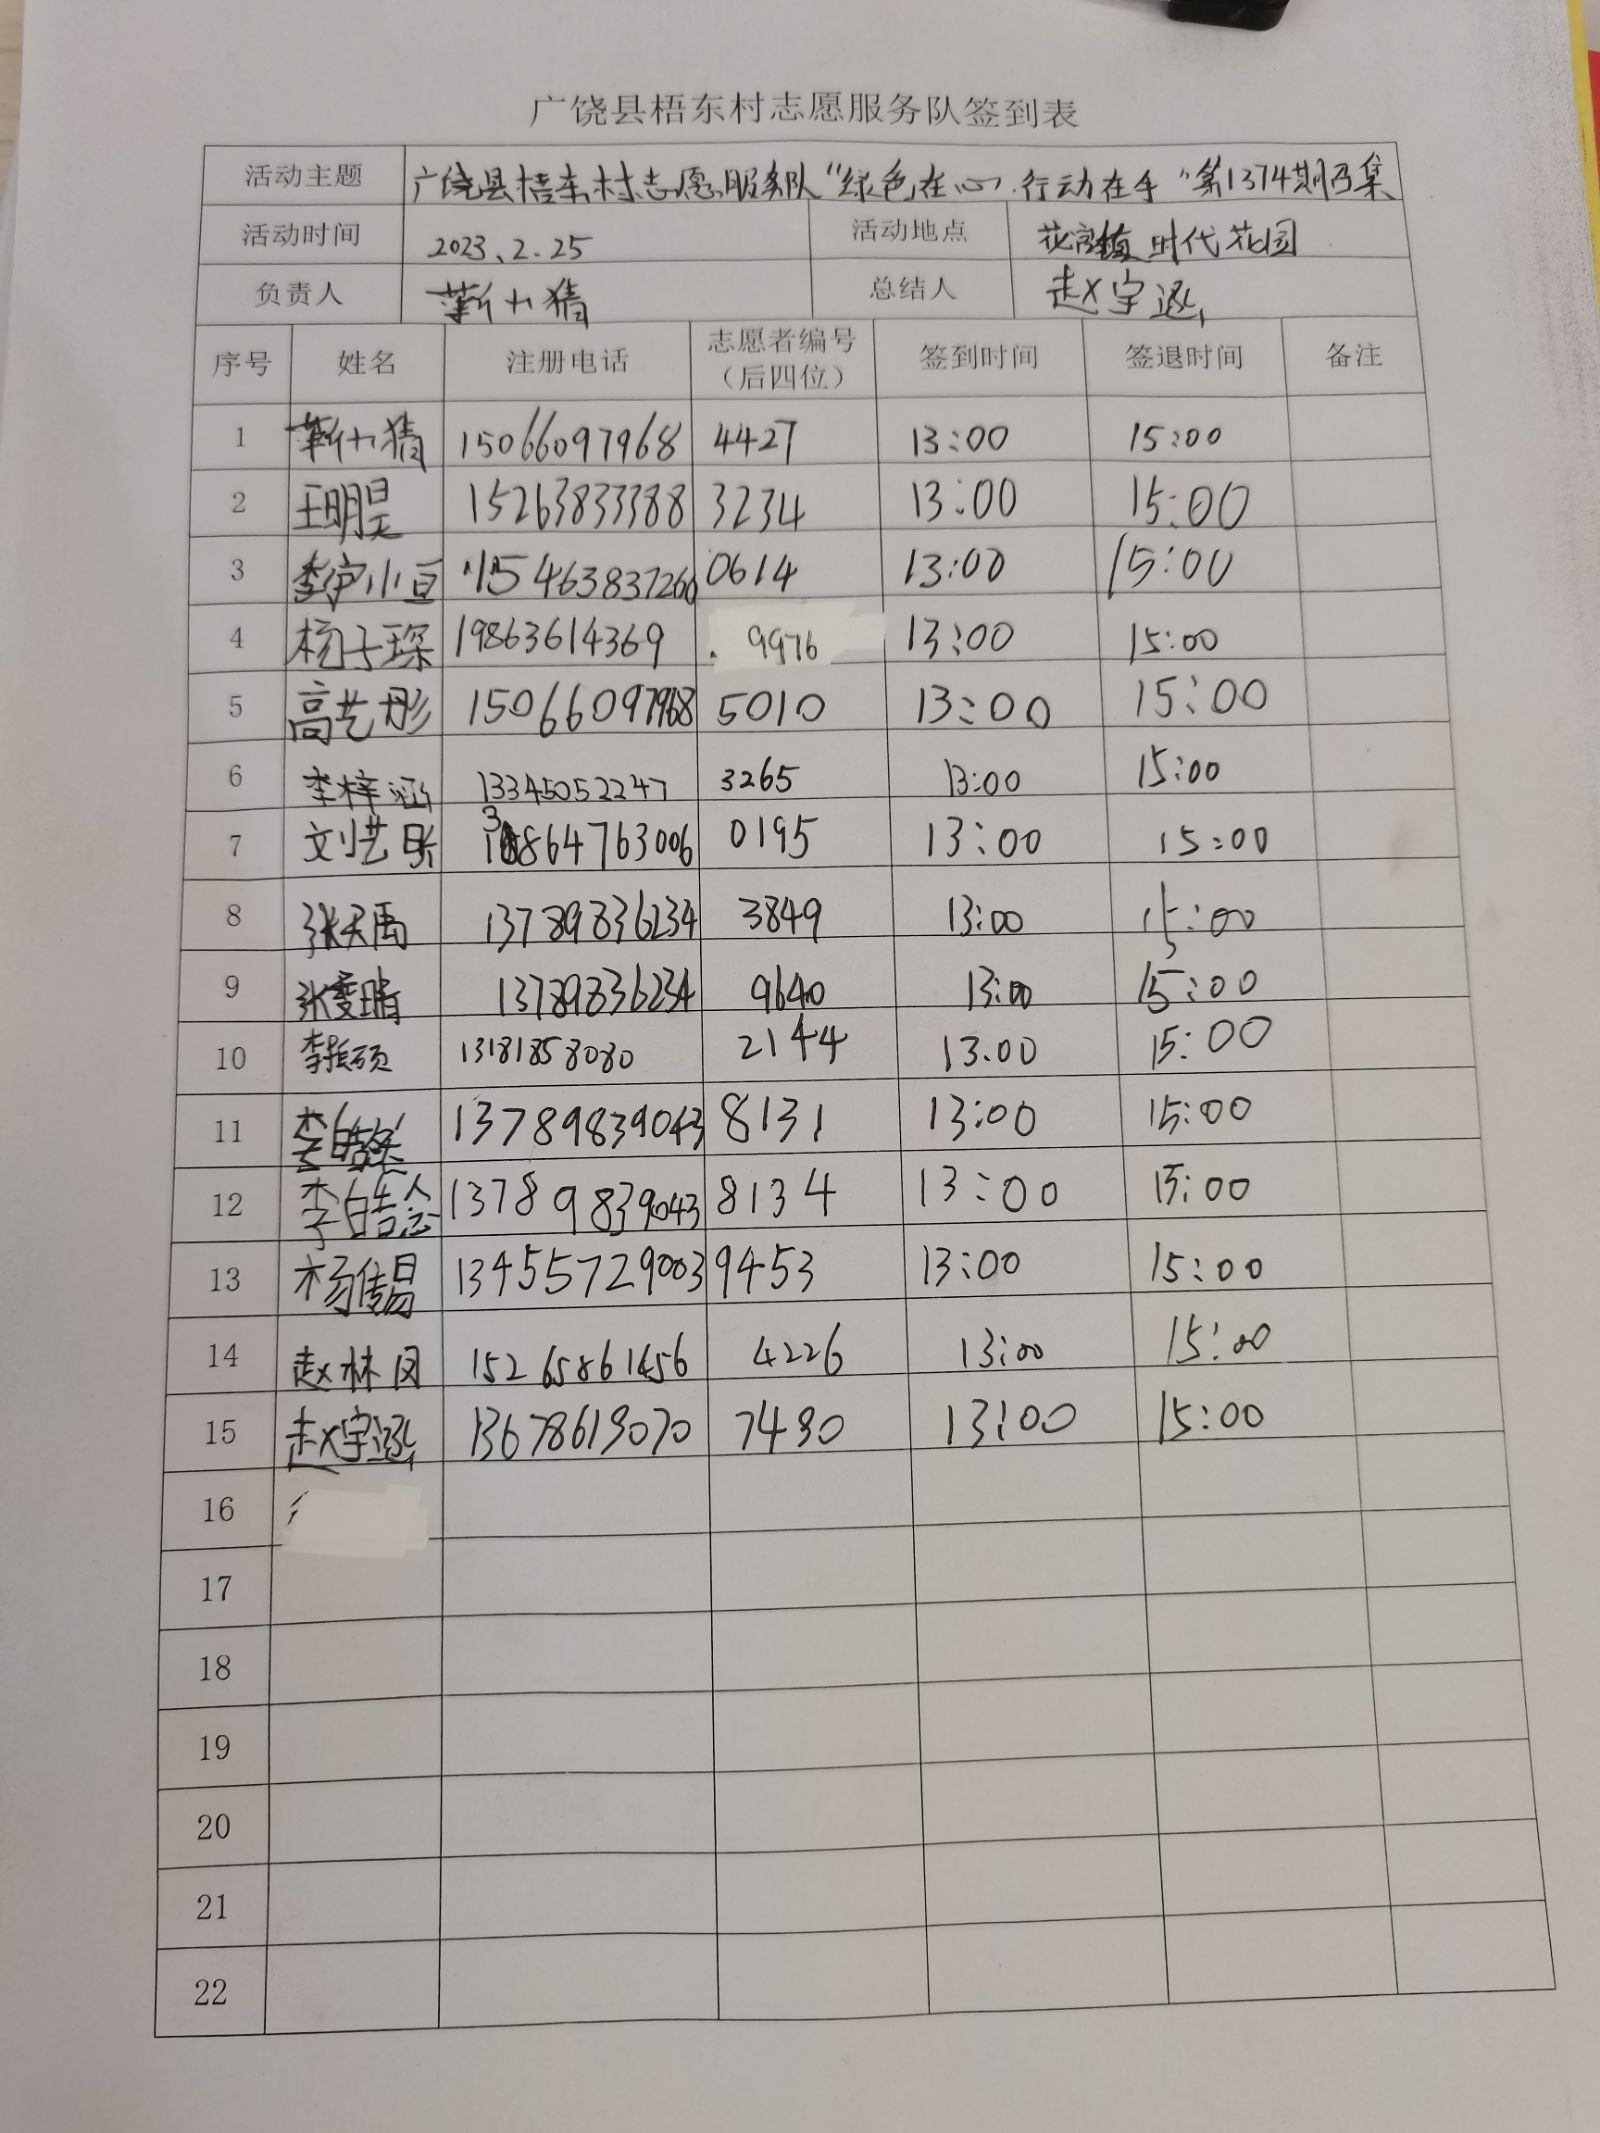 广饶县梧东村志愿服务队签到表
活动主题 广饶县梧东村志愿服务队“绿色在心,行动在手”第1374期召集
活动时间 2023.2.25 活动地点 花官镇时代花园
负责人 总结人 赵宇涵
序号 姓名 注册电话 志愿者编号（后四位） 签到时间 签退时间 备注
1 15066097968 4427 13:00 15:00
2 王明昊 15263833388 3234 13:00 15:00
3 0614 13:00 15:00
4 杨子琛 19863614369 9976 13:00 15:00
5 高艺彤 15066097968 5010 13:00 15:00
6 李梓涵 13345052247 3265 13:00 15:00
7 0195 13:00 15:00
8 张天禹 13789836234 3849 13:00 15:00
9 13789836234 9640 13:00 15:00
10 李振硕 13181858080 2144 13:00 15:00
11 13789839043 8131 13:00 15:00
12 13789839043 8134 13:00 15:00
13 13455729003 9453 13:00 15:00
14 赵林凤 15265861456 4226 13:00 15:00
15 赵宇涵 13678619070 7480 13:00 15:00
16
17
18
19
20
21
22